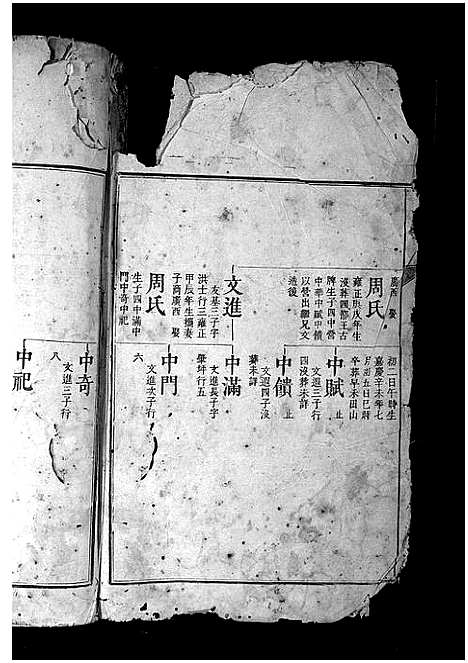 廣西娶
周氏
雍正庚戌年生
沒葬圓部王古
牌生子四中當
中華中賦中償
以當出繼兄文
達後
初二日午時生
嘉慶辛未年七
月初五日巳時
卒葬早禾田山
中賦
文遐三子行
四沒葬未詳
止
中償
文遐四子沒
葬未詳
止
文進
友基三子字
洪士行三雍正
甲辰年生繼妻
子商廣西娶
周氏
生子四中滿中
門中奇中祀
中滿
文進長子字
肇坤行五
中門
文進次子行
六
中奇
文進三子行
八
中祀